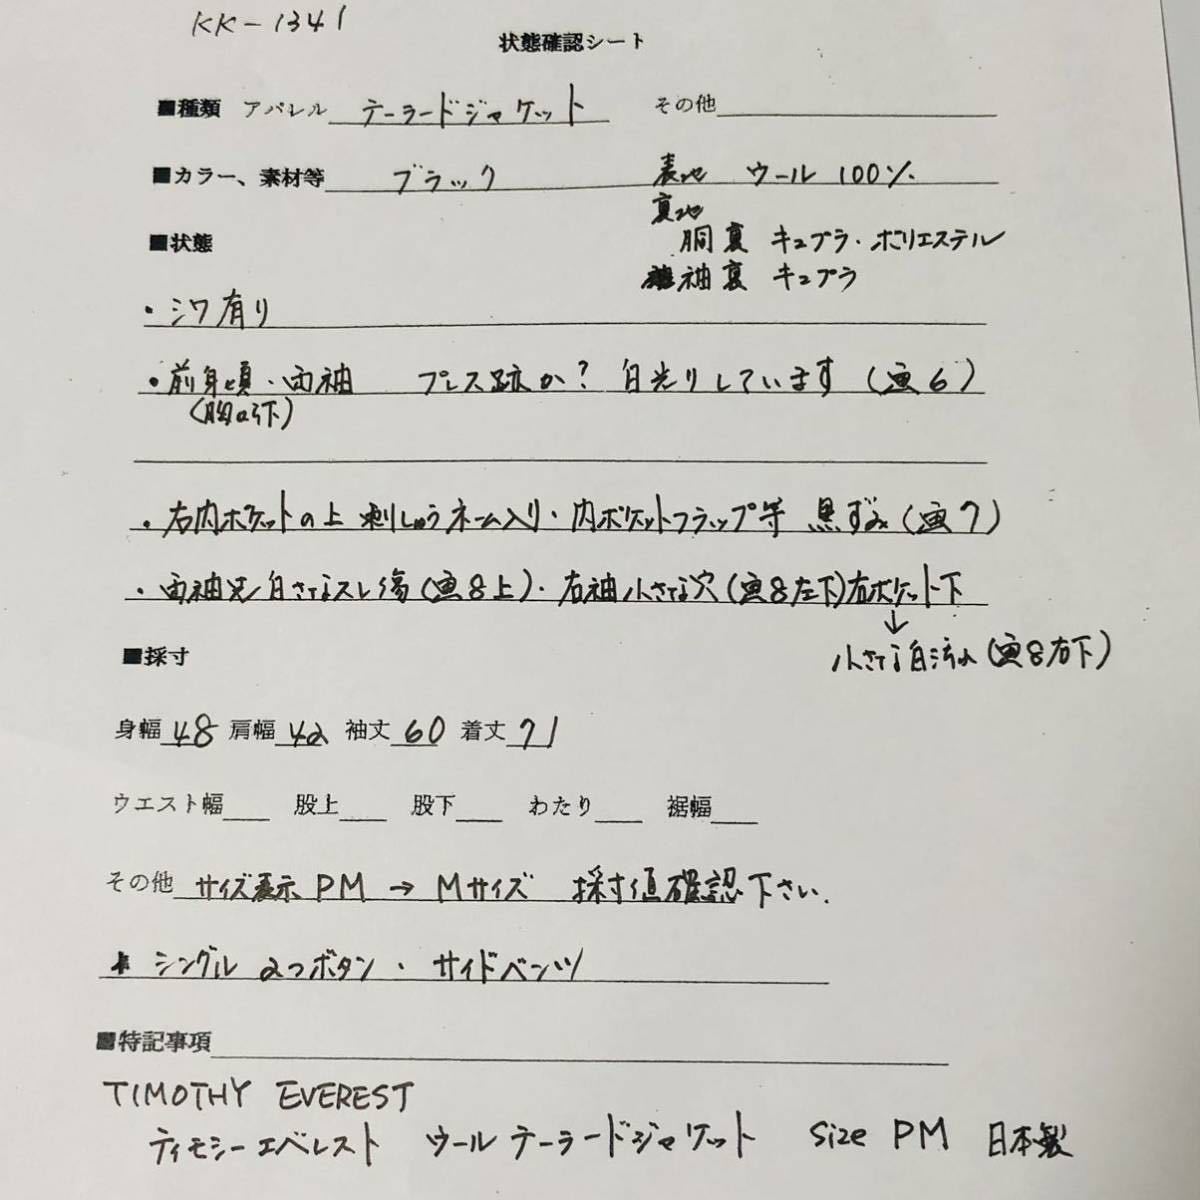 KK-1341
状態確認シート
■種類 アパレル テーラードジャケット その他
■カラー、素材等 ブラック 表地 ウール 100%
裏地
■状態 胴裏 キュプラ・ポリエステル
袖裏 キュプラ
・シワ有り
・前身頃・両袖 プレス跡か? 白光りしています (画6)
・右内ポケットの上 刺しゅうネーム入り・内ポケットフラップ等 黒ずみ (画7)
・両袖先 白さなスレ傷 (画8上)・右袖小さな穴 (画8左下) 右ポケット下
↓
小さな白 (画8右下)
■採寸
身幅 48 肩幅 42 袖丈 60 着丈 71
ウエスト幅 股上 股下 わたり 裾幅
その他 サイズ表示 PM → Mサイズ 採寸値確認下さい.
シングル 2つボタン・サイドベンツ
■特記事項
TIMOTHY EVEREST
ティモシーエベレスト ウール テーラードジャケット size PM 日本製